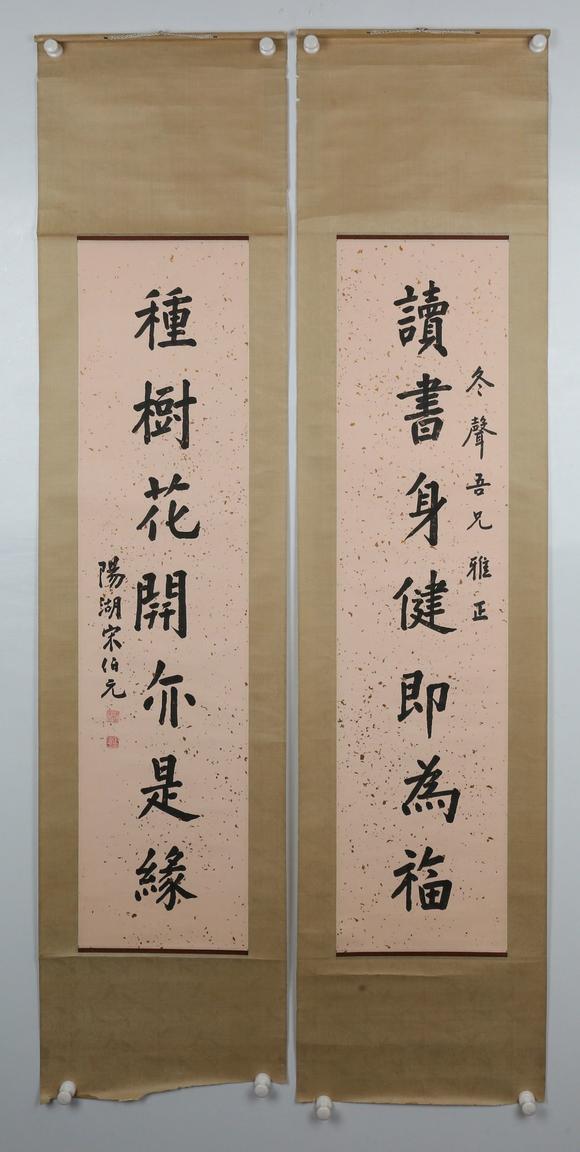 冬聲吾兄雅正
讀書身健即為福
種樹花開亦是緣
陽湖宋伯元